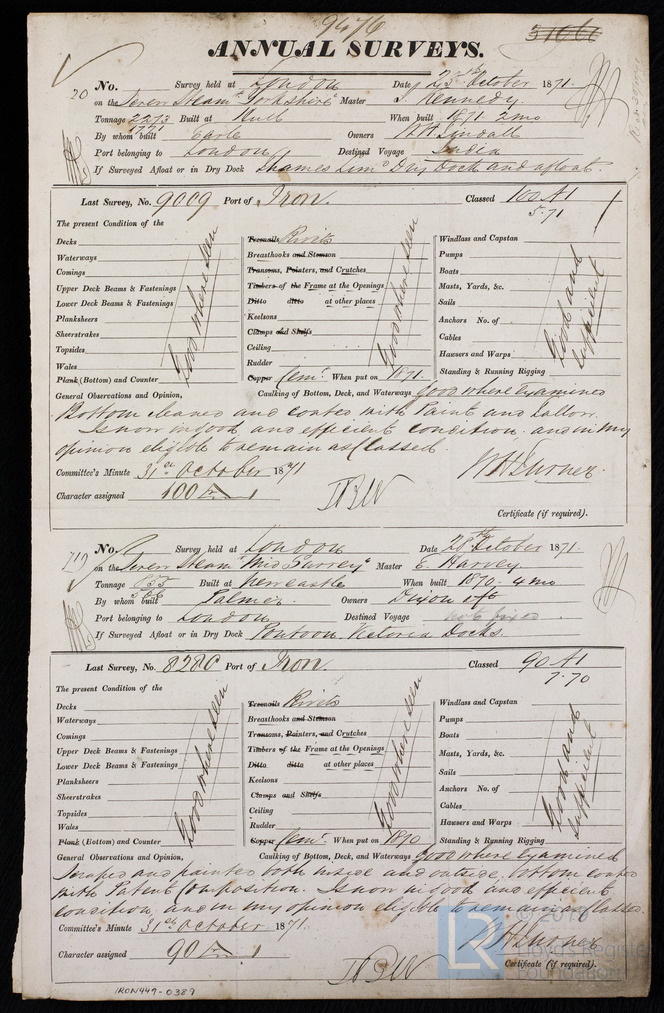 9476
ANNUAL SURVEYS.
20 No. Survey held at London Date 25th October 1871.
on the Screw Steamr "Yorkshire" Master J. Kennedy.
Tonnage 2273 1771 Built at Hull When built 1871 2mo
By whom built Earle Owners Tindall
Port belonging to London Destined Voyage India
If Surveyed Afloat or in Dry Dock Thames Dry Dock and afloat.
Last Survey, No. 9009 Port of Iron. Classed 100 A1
5.71
The present Condition of the
Decks Treenails Rivets Windlass and Capstan
Waterways Breasthooks and Stemson Pumps
Comings Transoms, Pointers, and Crutches Boats
Upper Deck Beams & Fastenings Timbers of the Frame at the Openings Masts, Yards, &c.
Lower Deck Beams & Fastenings Ditto ditto at other places Sails
Planksheers Keelsons Anchors No. of
Sheerstrakes Clamps and Shelfs Cables
Topsides Ceiling Hausers and Warps
Wales Rudder Standing & Running Rigging
Good where seen Good where seen Good and sufficient
Plank (Bottom) and Counter Copper Cemt. When put on 1871.
General Observations and Opinion, Caulking of Bottom, Deck, and Waterways Good where Examined
Bottom cleaned and coated with Paint and Tallow.
Is now in good and efficient condition and in my
opinion eligible to remain as Classed.
Committee's Minute 31st October 1871 W H Turner.
Character assigned 100 A 1
Certificate (if required).
719 No. Survey held at London Date 28th October 1871.
on the Screw Steamr "Mid Surrey" Master E. Harvey.
Tonnage Built at Newcastle When built 1870. 4mo
By whom built Palmer. Owners Dixon
Port belonging to London Destined Voyage not fixed
If Surveyed Afloat or in Dry Dock Pontoon Victoria Docks.
Last Survey, No. 8280 Port of Iron. Classed 90 A1
7.70
The present Condition of the
Decks Treenails Rivets Windlass and Capstan
Waterways Breasthooks and Stemson Pumps
Comings Transoms, Pointers, and Crutches Boats
Upper Deck Beams & Fastenings Timbers of the Frame at the Openings Masts, Yards, &c.
Lower Deck Beams & Fastenings Ditto ditto at other places Sails
Planksheers Keelsons Anchors No. of
Sheerstrakes Clamps and Shelfs Cables
Topsides Ceiling Hausers and Warps
Wales Rudder Standing & Running Rigging
Good where seen Good where seen Good and sufficient
Plank (Bottom) and Counter Copper Cemt. When put on 1870
General Observations and Opinion, Caulking of Bottom, Deck, and Waterways Good where Examined
Scraped and painted both inside and outside, bottom coated
with Patent Composition. Is now in good and efficient
condition, and in my opinion eligible to remain as Classed.
Committee's Minute 31st October 1871. W H Turner
Character assigned 90 A 1
Certificate (if required).
IRON449-0389
LR © 2019 Lloyd's Register Foundation